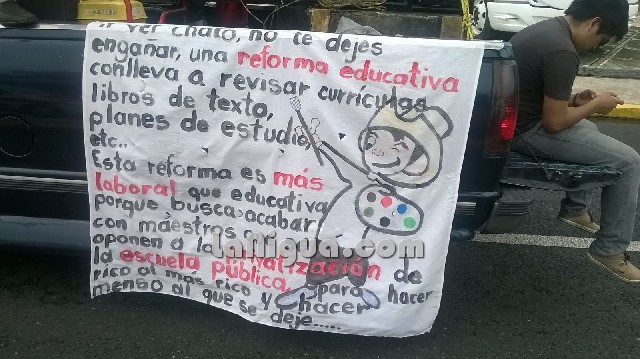 ver chato, no te dejes
engañar, una reforma educativa
conlleva a revisar curriculas
libros de texto,
planes de estudio,
etc..
Esta reforma es más
laboral que educativa
porque busca acabar
con maestros
oponen a la de
LaHigua.com
la escuela pública, para hacer
rico al más rico y hacer
menso al que se deje.....